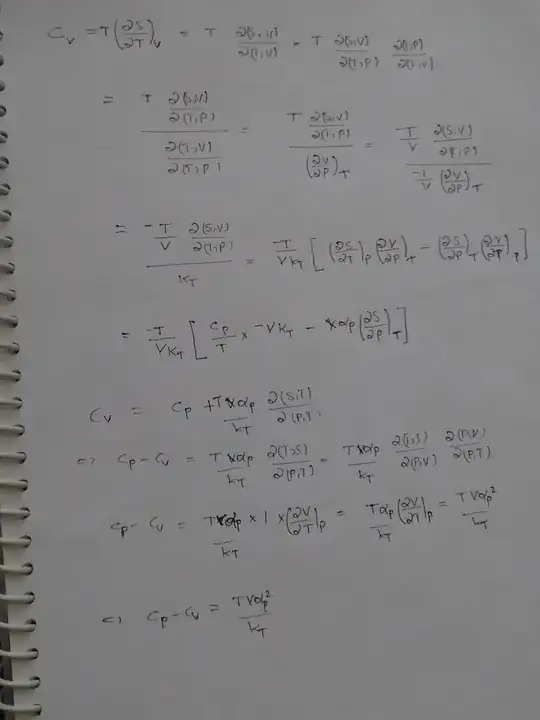 C_v = T(∂S/∂T)_V = T ∂(S,V)/∂(T,V) = T ∂(S,V)/∂(T,P) ∂(T,P)/∂(T,V)
= T ∂(S,V)/∂(T,P) / ∂(T,V)/∂(T,P) = T ∂(S,V)/∂(T,P) / (∂V/∂P)_T = T/V ∂(S,V)/∂(T,P) / -1/V (∂V/∂P)_T
= -T/V ∂(S,V)/∂(T,P) / K_T = -T/VK_T [(∂S/∂T)_P (∂V/∂P)_T - (∂S/∂P)_T (∂V/∂T)_P]
= -T/VK_T [C_P/T × -VK_T - Vα_P (∂S/∂P)_T]
C_v = C_P + TVα_P/K_T ∂(S,T)/∂(P,T)
=> C_P - C_V = TVα_P/K_T ∂(T,S)/∂(P,T) = TVα_P/K_T ∂(T,S)/∂(P,V) ∂(P,V)/∂(P,T)
C_P - C_V = Tα_P/K_T × 1 × (∂V/∂T)_P = Tα_P/K_T (∂V/∂T)_P = TVα_P²/K_T
=> C_P - C_V = TVα_P²/K_T